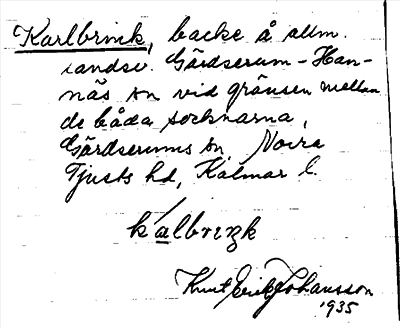 Karlbrink, backe å allm.
landsv. Gärdserum - Han-
näs sn vid gränsen mellan
de båda socknarna,
Gärdserums sn, Norra
Tjusts hd, Kalmar l.
kalbriŋk
Knut Erik Johansson
1935